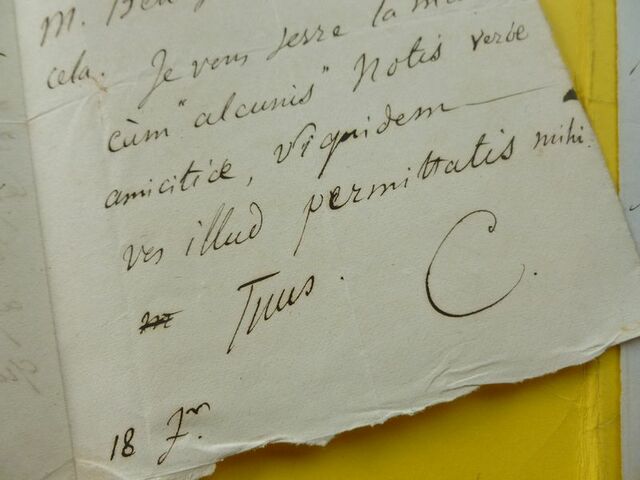 M. Ben
cela. Je vous serre la ma
cùm "alcunis" notis veræ
amicitiæ, siquidem
vos illud permittatis mihi.
Tuus. C.
18 Jr.